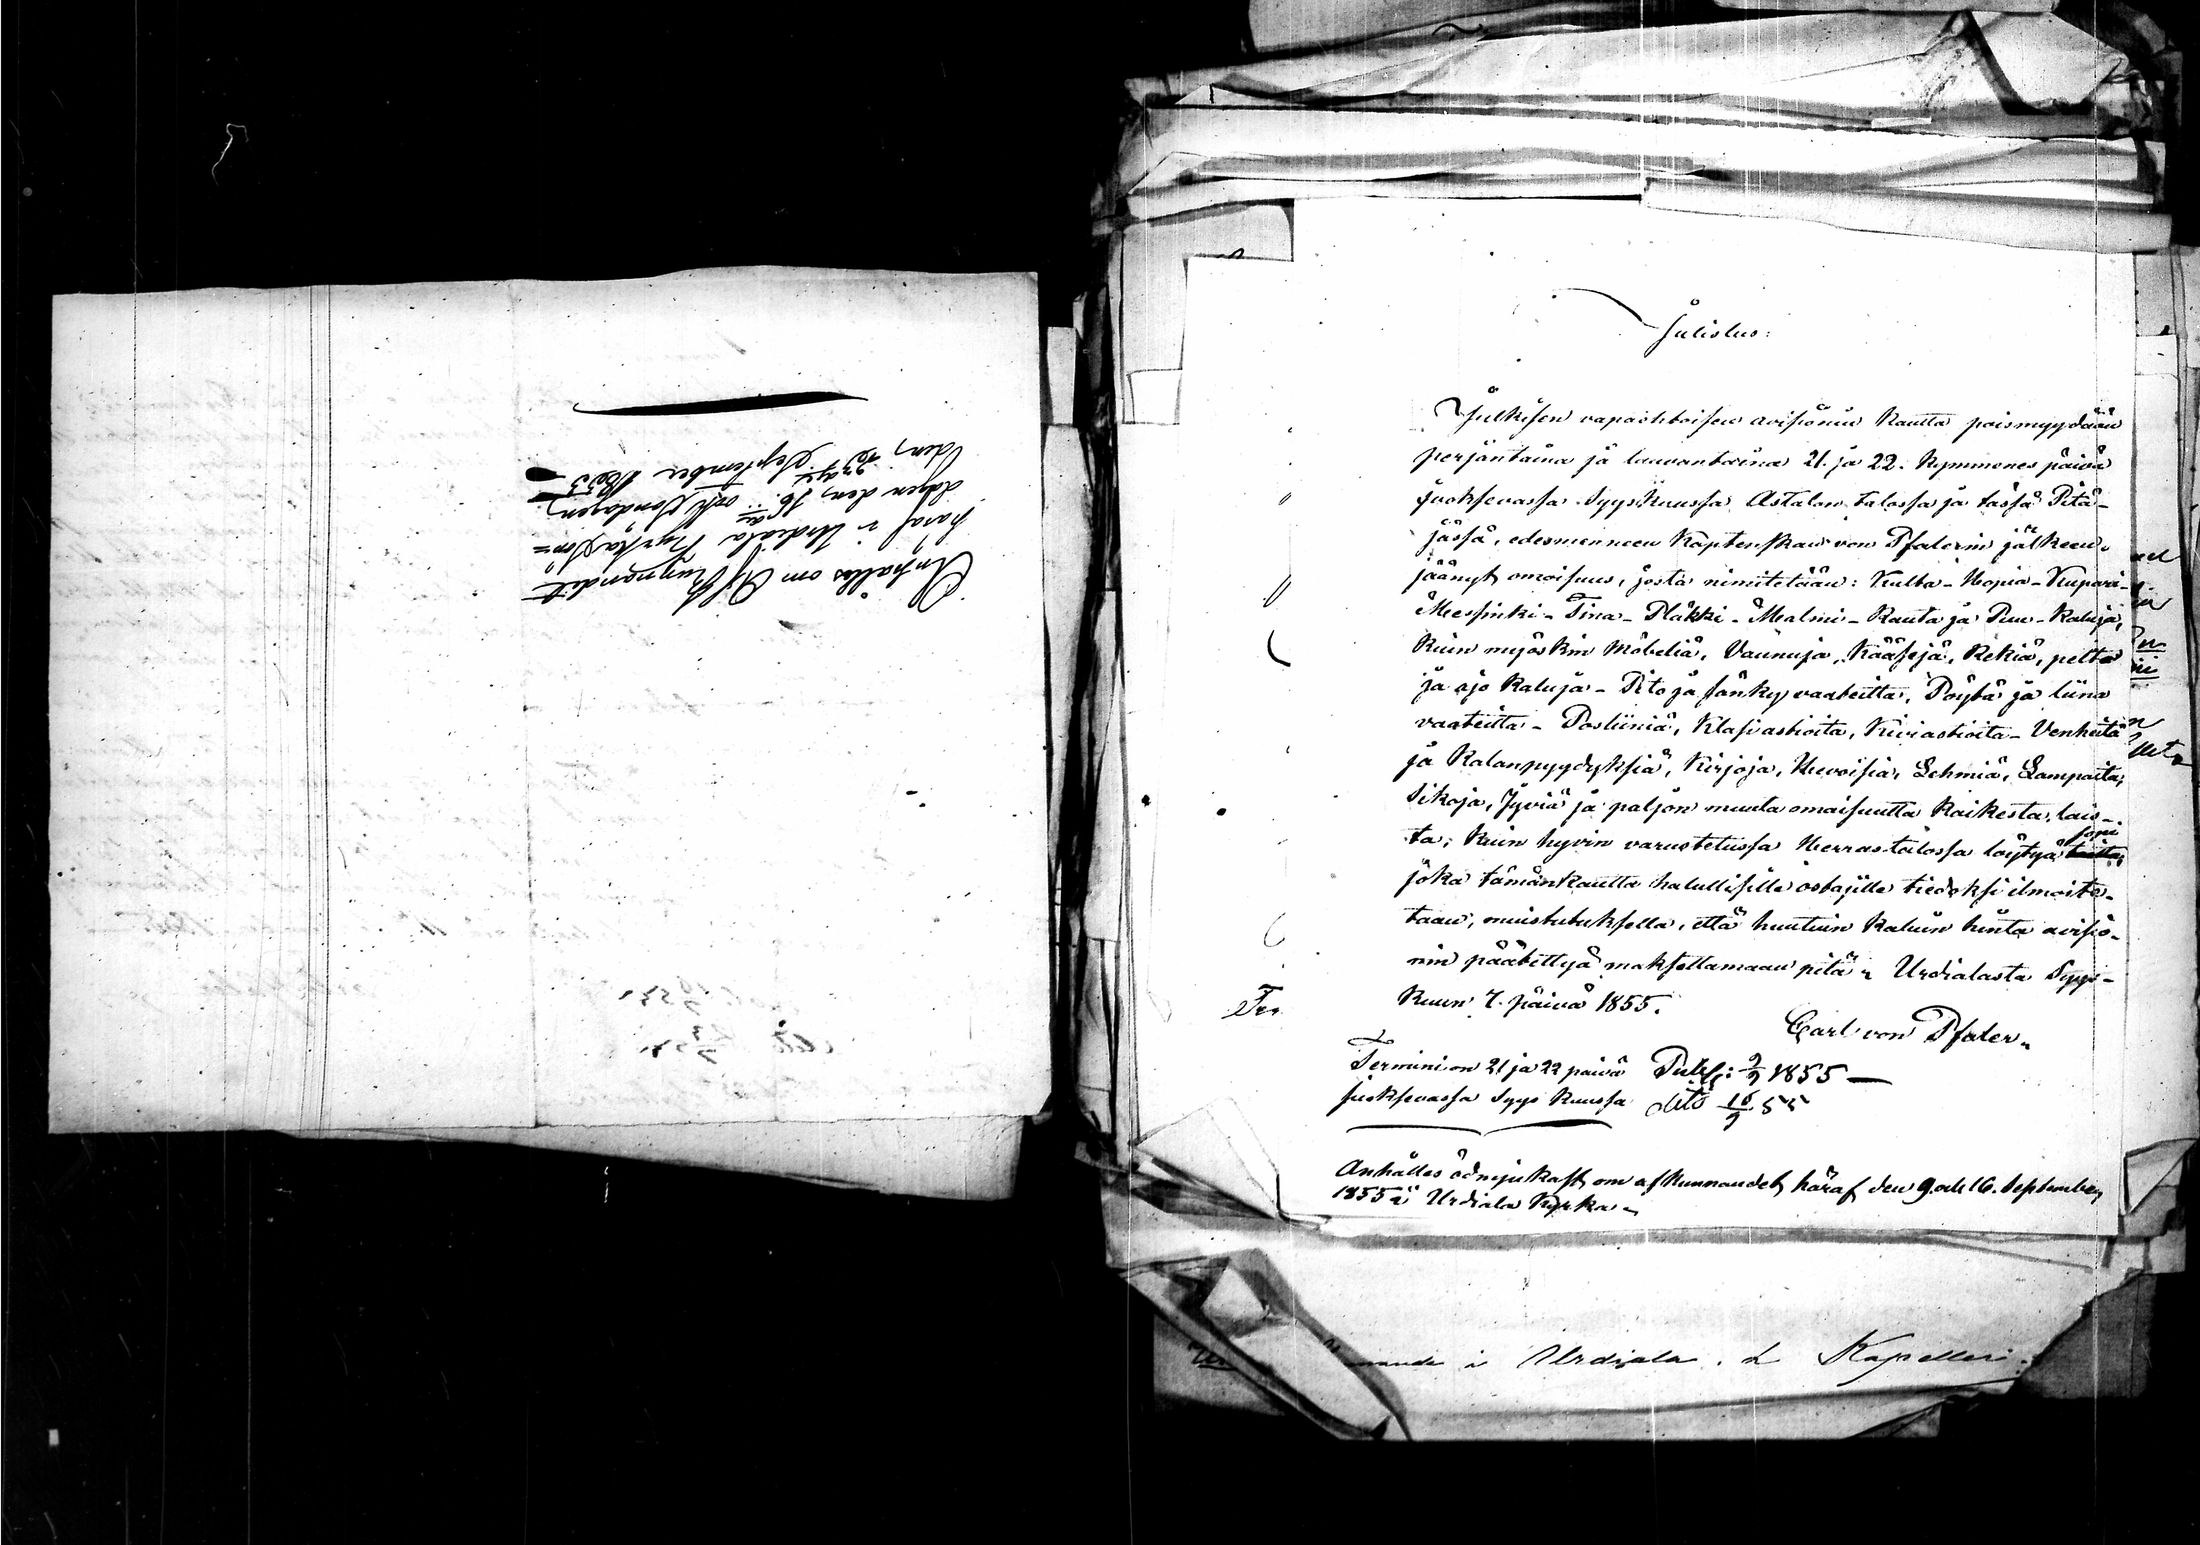 Anhålles om Afkunnandet
häraf i Urdiala Kyrka Sön-
dagen den 16de och Söndagen
den 23dje September 1855
Julistus:
Julkisen vapaehtoisen avisionin kautta poismyydään
perjantaina ja lauvantaina 21. ja 22. kymmenes päivä
juoksevassa Syyskuussa Astalan talossa ja tässä Pitä-
jässä, edesmenneen Kaptenskan von Pfalerin jälkeen
jäänyt omaisuus, josta nimitetään: Kulta- Hopia- Kupari-
Messinki- Tina- Pläkki- Malmi- Rauta ja Puu- Kaluja,
kuin myöskin Möbeliä, Vaunuja, Kääsejä, Rekiä, pelto
ja ajo kaluja- Pito ja sänkyvaateitta, Pöytä ja liina
vaateitta- Posliiniä, Klasiastioita, Kiviastioita- Venheitä
ja Kalanpyydyksiä, Kirjoja, Hevoisia, Lehmiä, Lampaita,
Sikoja, Jyviä ja paljon muuta omaisuutta kaikesta lais-
ta, kuin hyvin varustetussa Herrastalossa löytyä
joka tämänkautta halullisille ostajille tiedoksi ilmoite-
taan, muistutuksella, että huutuin kaluin hinta avisio-
nin päätettyä maksettamaan pitä. Urdialasta Syys-
kuun 7. päivä 1855.
Carl von Pfaler.
Termini on 21 ja 22 päivä Publ: 9/9 1855 —
juoksevassa Syys Kuussa dito 16/9 55
Anhålles ödmjukast om afkunnandet häraf den 9. och 16. September
1855 i Urdiala Kyrka.
i Urdiala Kapelleri.